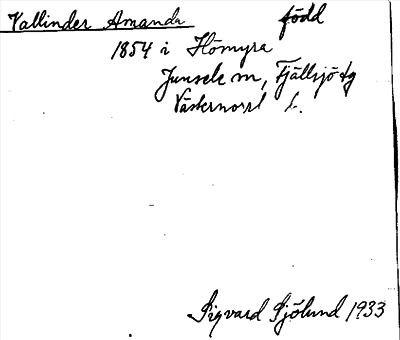 Vallinder Amanda född
1854 i Hömyra
Junsele sn, Fjällsjö tg
Västernorrl l.
Sigvard Sjölund 1933